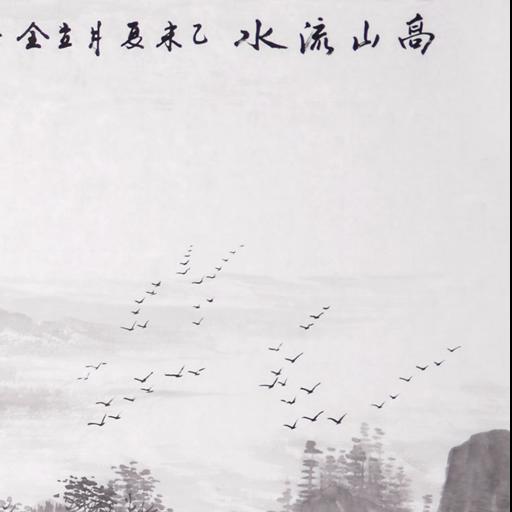 高山流水 乙未夏井立全